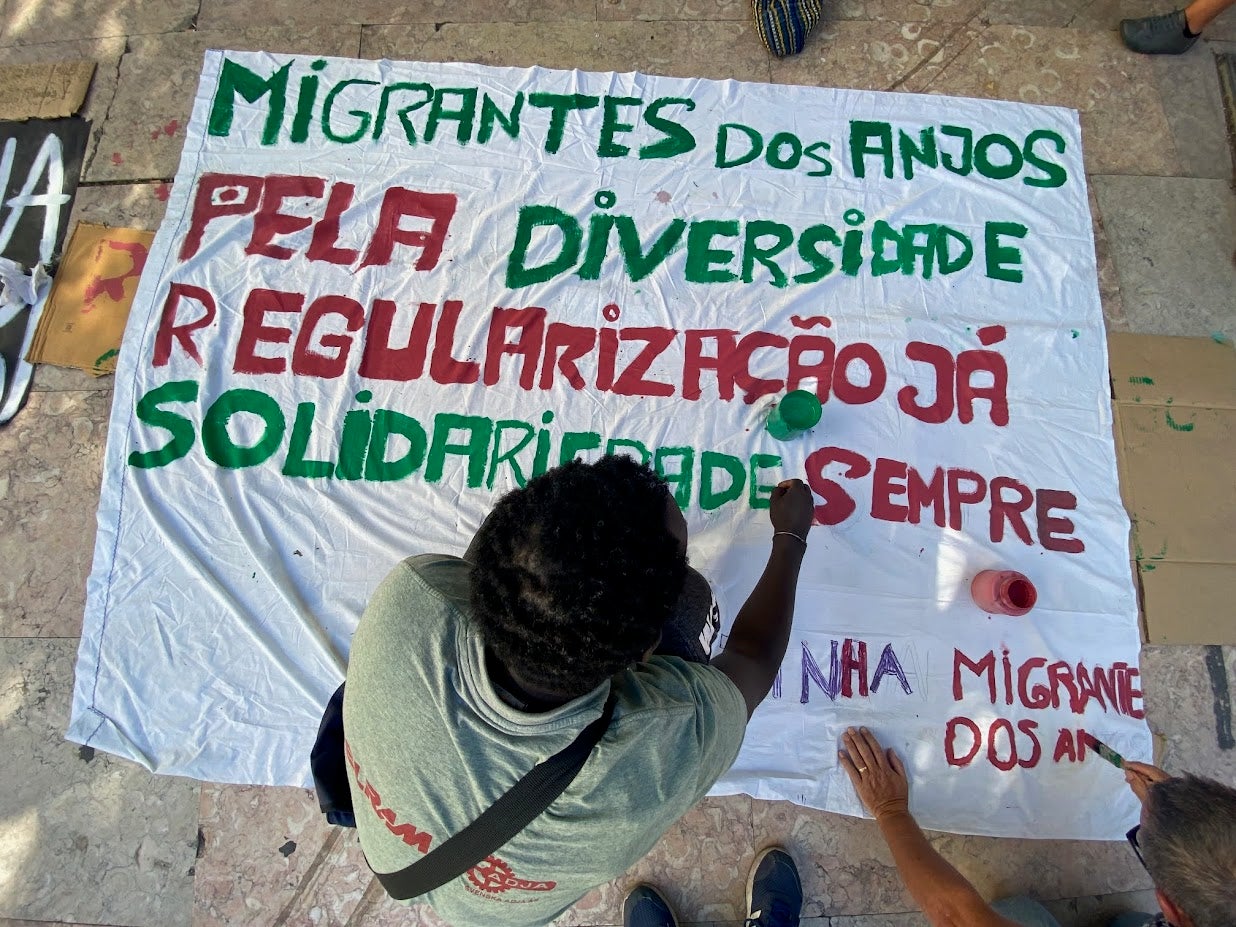 MIGRANTES DOS ANJOS
PELA DIVERSIDADE
REGULARIZAÇÃO JÁ
SOLIDARIEDADE SEMPRE
NHA MIGRANTE
DOS AN